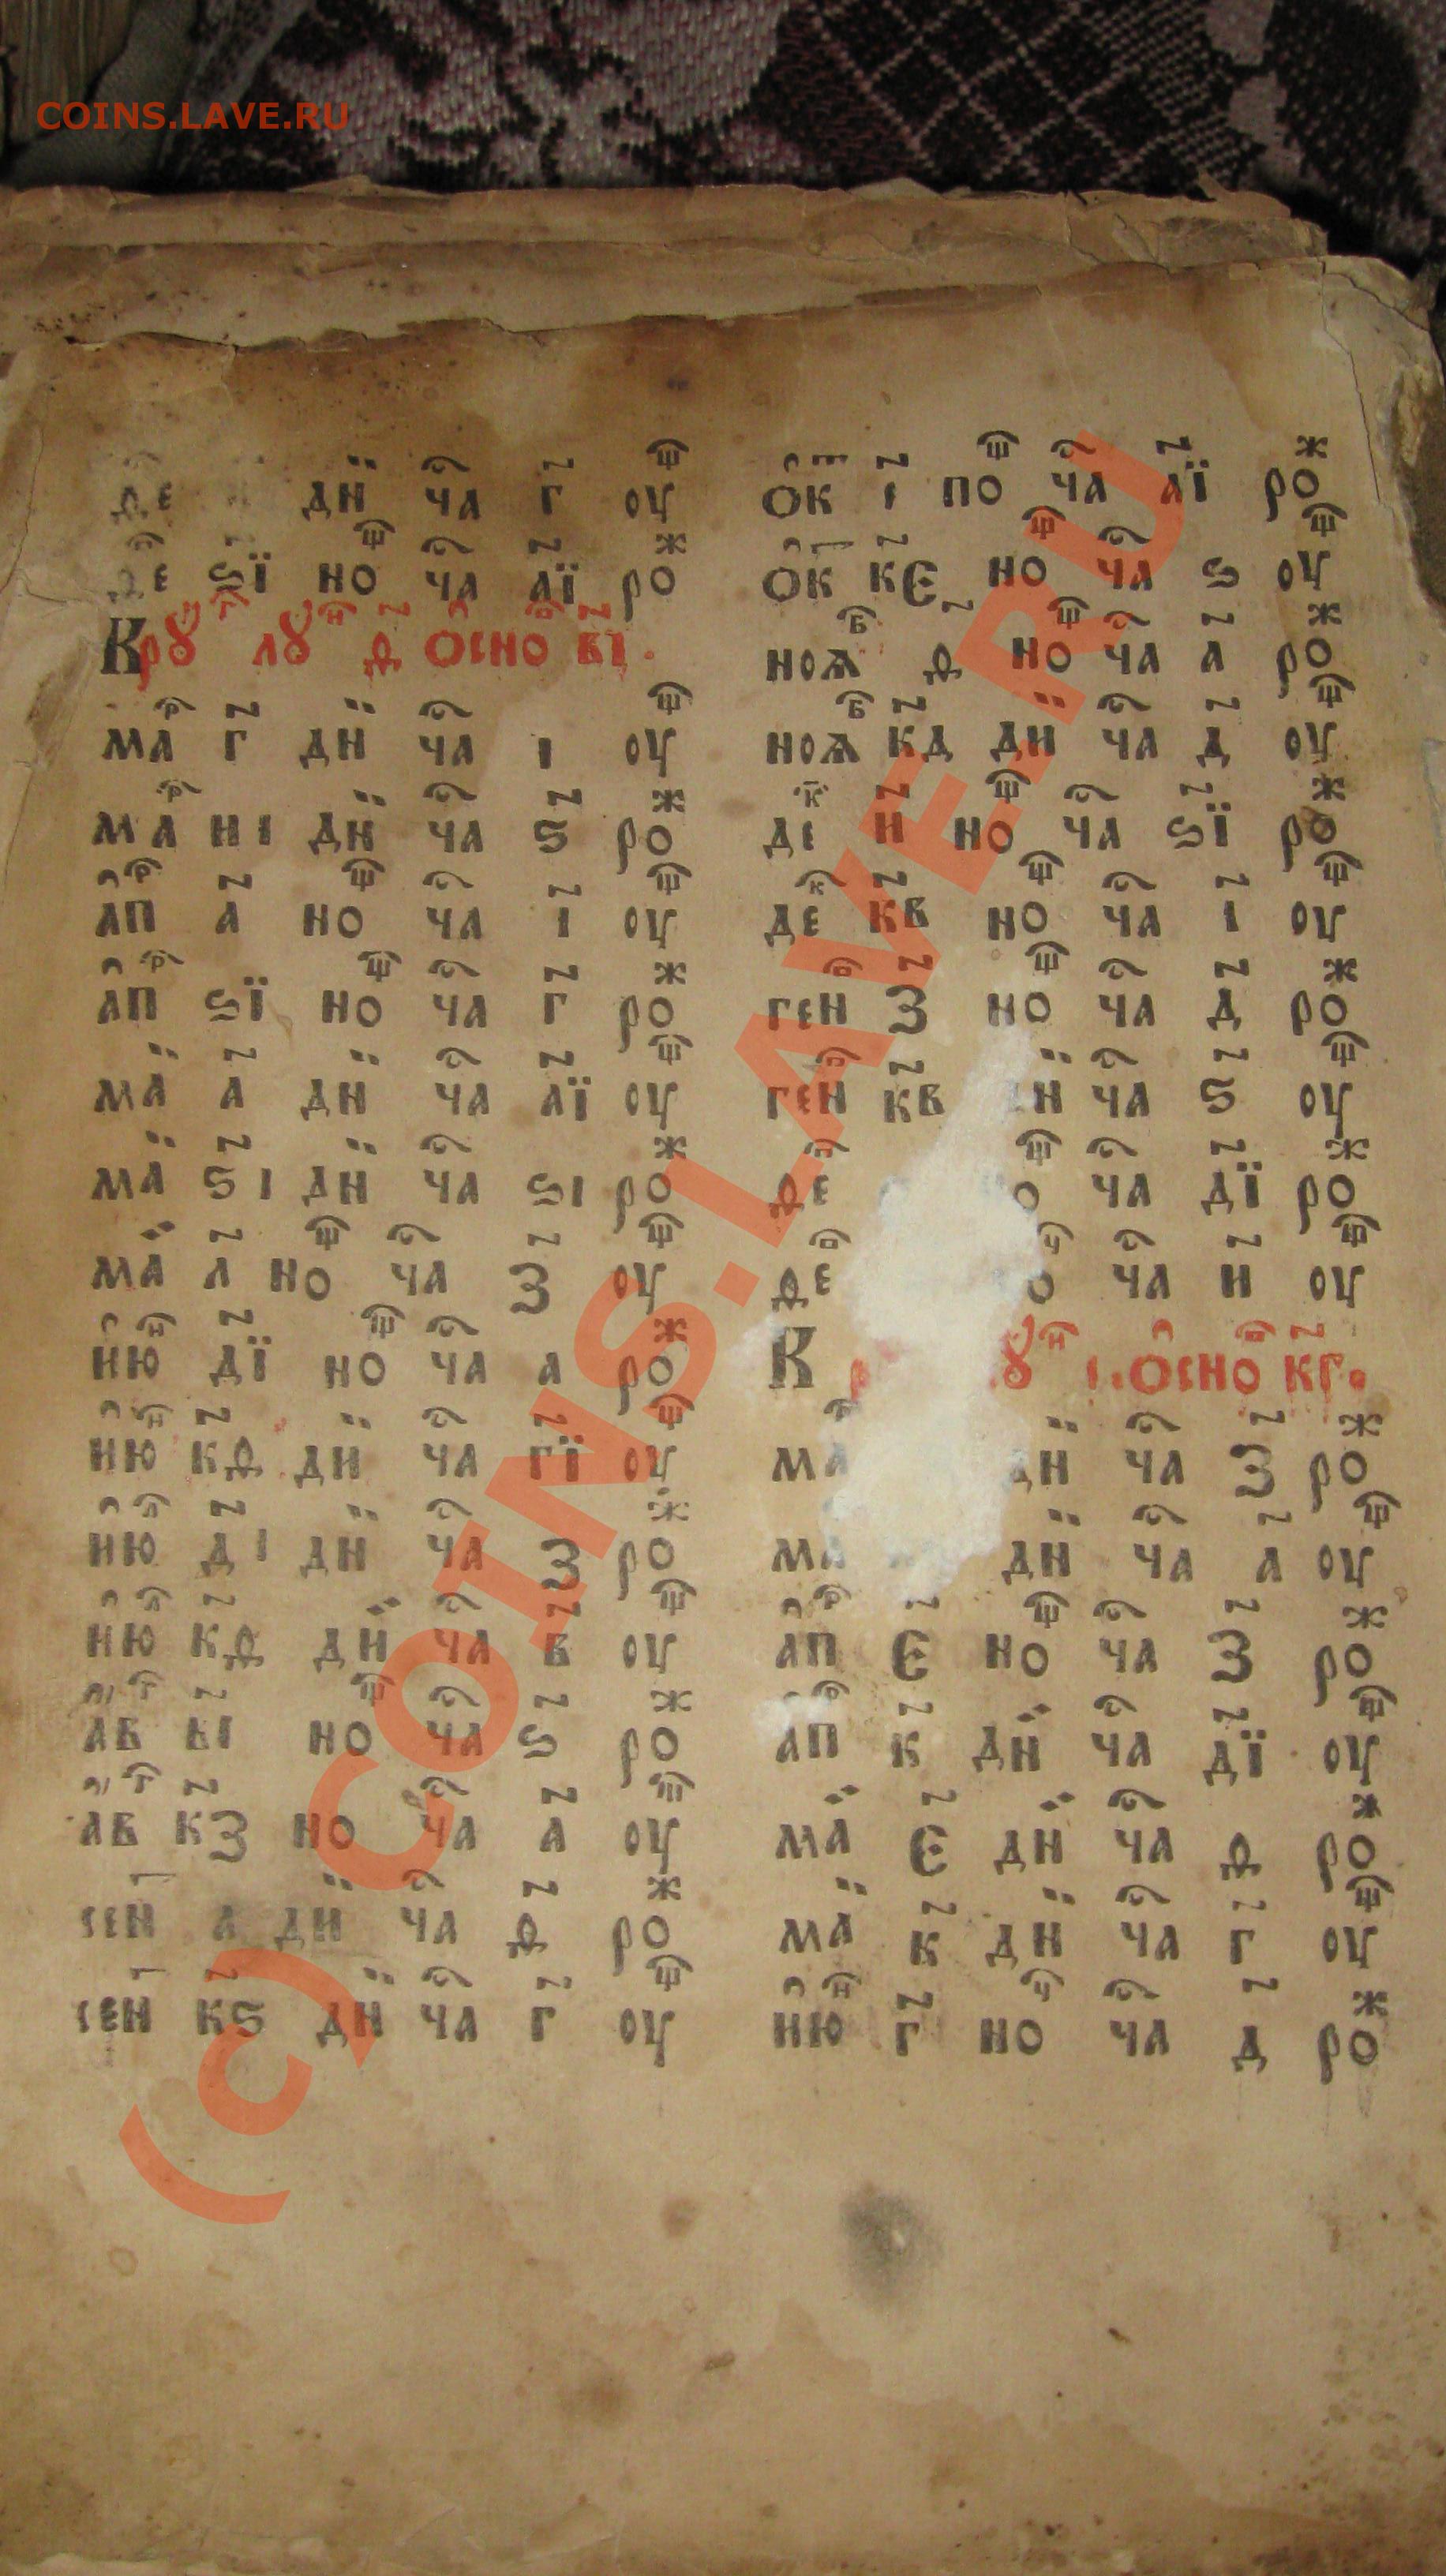 COINS.LAVE.RU
дн҃ ча г оу
ѕї но ча аї ро
Крꙋ лꙋ ѳ осно вı
ма г дн ча і оу
ма ні дн ча ѕ ро
ап а но ча і оу
ап ѕї но ча г ро
ма а дн ча аї оу
ма ѕі дн ча ѕі ро
ма л но ча з оу
ню дї но ча а ро
ню кѳ дн ча гї оу
ню ді дн ча з ро
ню кѳ дн ча в оу
ав ві но ча ѕ ро
ав кз но ча а оу
сен а дн ча ѳ ро
сен кѕ дн ча г оу
ок і по ча аї ро
ок ке но ча ѕ оу
ноѧ ѳ но ча а ро
ноѧ кд дн ча д оу
де н но ча ѕї ро
де кв но ча і оу
ген з но ча д ро
ген кв дн ча ѕ оу
ѳе ча дї ро
ѳе ча н оу
К осно кг
ма дн ча з ро
ма дн ча а оу
ап є но ча з ро
ап к дн ча дї оу
ма є дн ча ѳ ро
ма к дн ча г оу
ню г но ча д ро
(c) COINS.LAVE.RU